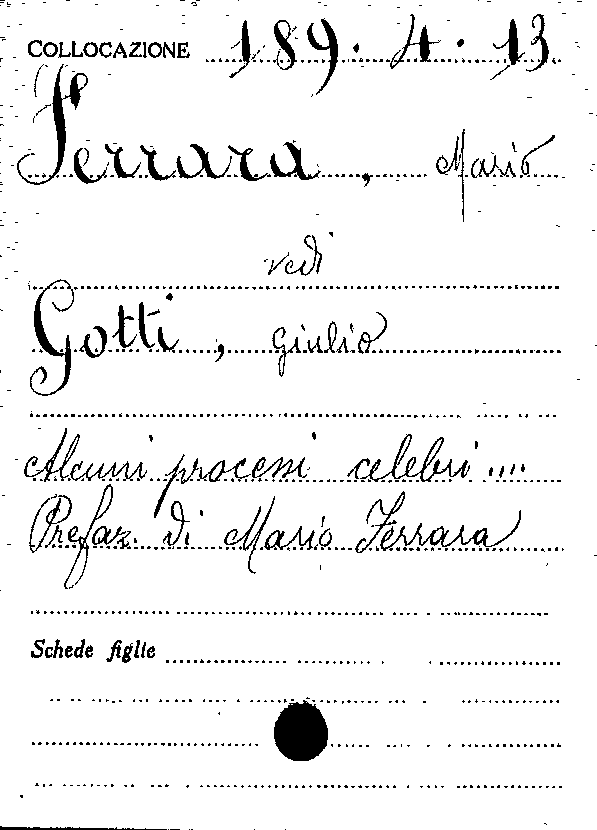 COLLOCAZIONE 189. 4. 13
Ferrara, Mario
vedi
Gotti, Giulio
Alcuni processi celebri ....
Prefaz. di Mario Ferrara
Schede figlie